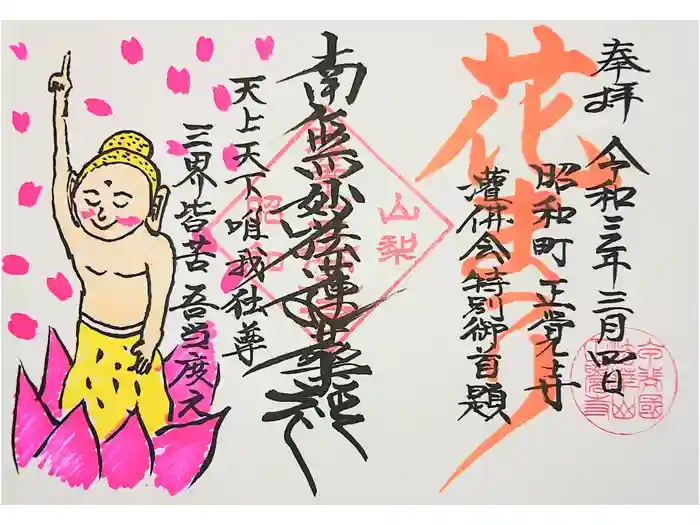 奉拝
令和三年三月四日
昭和町 正覚寺
花まつり
灌佛会特別御首題
南無妙法蓮華経
天上天下唯我独尊
三界皆苦吾当度之
山梨
昭和